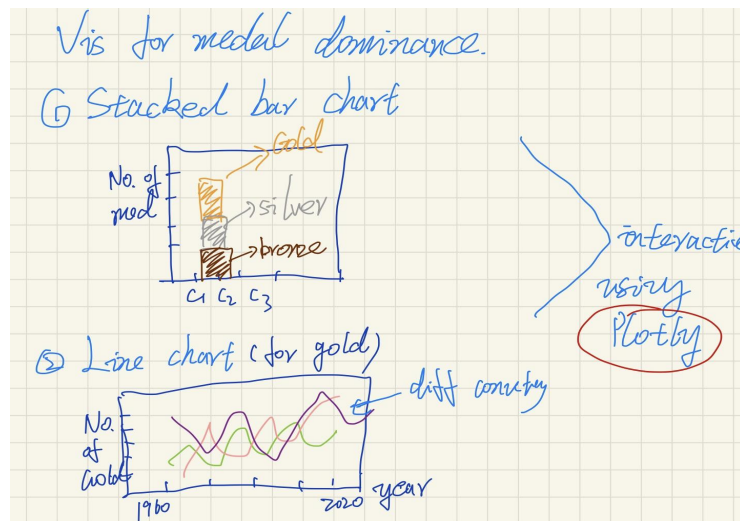 Vis for medal dominance.
① Stacked bar chart
Gold
No. of
med
silver
bronze
C1 C2 C3
interactive
using
Plotly
② Line chart (for gold)
diff country
No.
of
Gold
1960 2020 year